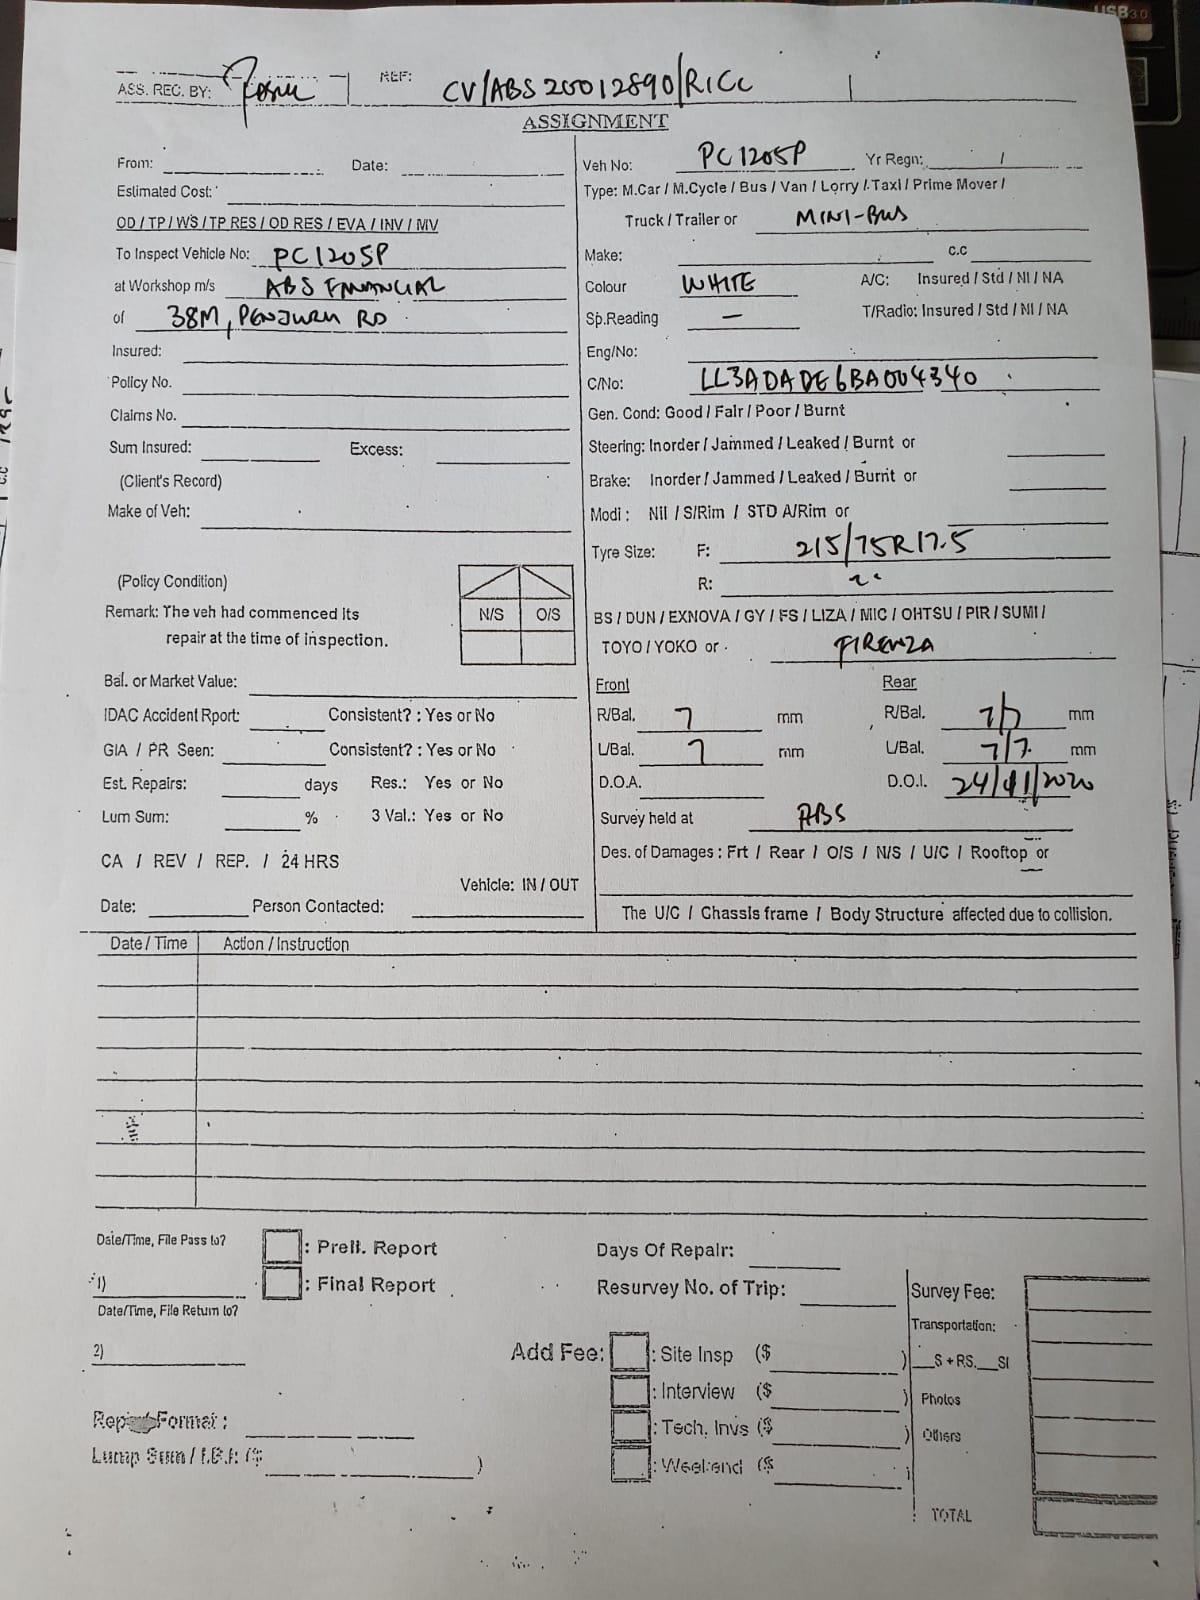 USB 3.0
ASS. REC. BY: REF: CV/ABS20012890/RICC
ASSIGNMENT
From: Date:
Estimated Cost:
OD / TP / WS / TP RES / OD RES / EVA / INV / MV
To Inspect Vehicle No: PC1205P
at Workshop m/s ABS FINANCIAL
of 38M, PENJURU RD
Insured:
Policy No.
Claims No.
Sum Insured: Excess:
(Client's Record)
Make of Veh:
(Policy Condition)
Remark: The veh had commenced its
repair at the time of inspection.
N/S O/S
Bal. or Market Value:
IDAC Accident Rport: Consistent? : Yes or No
GIA / PR Seen: Consistent? : Yes or No
Est. Repairs: days Res.: Yes or No
Lum Sum: % 3 Val.: Yes or No
CA / REV / REP. / 24 HRS
Vehicle: IN / OUT
Date: Person Contacted:
Veh No: PC1205P Yr Regn: /
Type: M.Car / M.Cycle / Bus / Van / Lorry / Taxi / Prime Mover /
Truck / Trailer or MINI-BUS
Make: c.c
Colour WHITE A/C: Insured / Std / NI / NA
Sp.Reading – T/Radio: Insured / Std / NI / NA
Eng/No:
C/No: LL3ADADE6BA004340
Gen. Cond: Good / Fair / Poor / Burnt
Steering: Inorder / Jammed / Leaked / Burnt or
Brake: Inorder / Jammed / Leaked / Burnt or
Modi : Nil / S/Rim / STD A/Rim or
Tyre Size: F: 215/75R17.5
R: "
BS / DUN / EXNOVA / GY / FS / LIZA / MIC / OHTSU / PIR / SUMI /
TOYO / YOKO or FIRENZA
Front Rear
R/Bal. 7 mm R/Bal. 7/7 mm
L/Bal. 7 mm L/Bal. 7/7 mm
D.O.A. D.O.I. 24/11/2020
Survey held at ABS
Des. of Damages : Frt / Rear / O/S / N/S / U/C / Rooftop or
The U/C / Chassis frame / Body Structure affected due to collision.
Date / Time Action / Instruction
Date/Time, File Pass to?
1)
Date/Time, File Return to?
2)
: Preli. Report
: Final Report
Days Of Repair:
Resurvey No. of Trip:
Add Fee: : Site Insp ($ )
: Interview ($ )
: Tech. Invs ($ )
: Weekend ($ )
Survey Fee:
Transportation:
S + RS. SI
Photos
Others
TOTAL
Format :
Lump Sum / I.B.I: ($ )